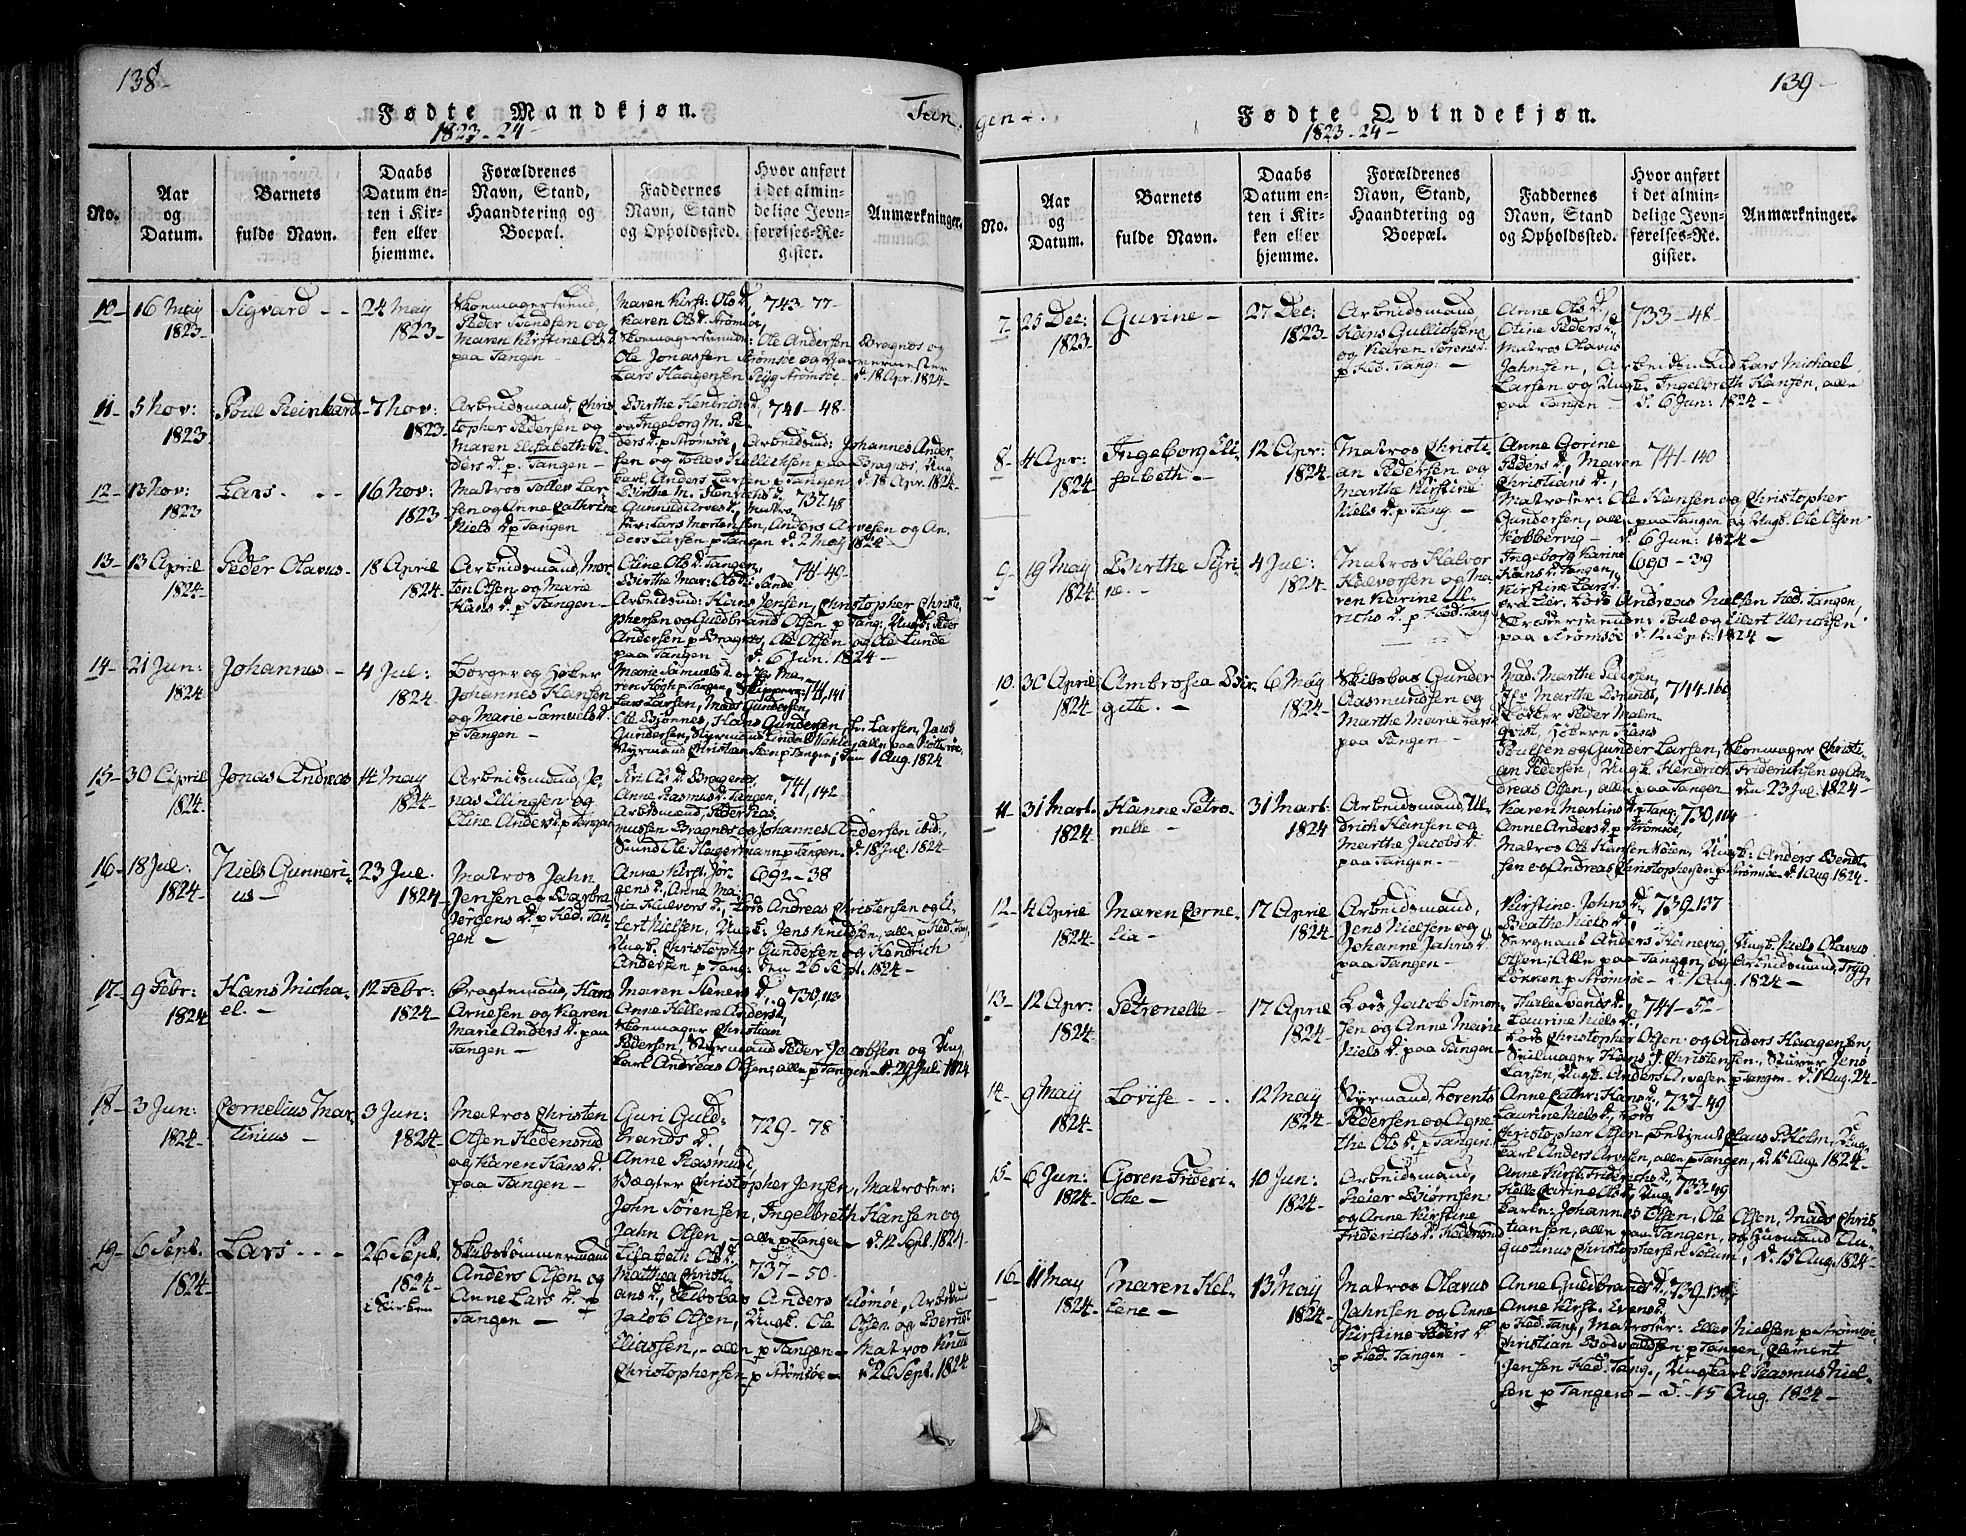 138-
Fødte Mandkjøn.
Tan-
1823-24-
No.
Aar
og
Datum.
Barnets
fulde Navn.
Daabs
Datum en-
ten i Kir-
ken eller
hjemme.
Forældrenes
Navn, Stand,
Haandtering og
Boepæl.
Faddernes
Navn, Stand
og Opholdssted.
Hvor anført
i det almin-
delige Jevn-
førelses-Re-
gister.
Anmærkninger.
10- 16 May
1823
Sigvard - -
24 May
1823-
Skomagersvend,
Peder Bendsen og
Maren Kirstine Ols d.
paa Tangen -
Maren Kirst: Ols d.,
Karen Ols d. Strømsøe,
Ole Jonassen Strømsøe og
Lars Haagensen Ryg Strømsøe-
d. 18 Apr. 1824-
743-77-
11- 5 Nov:
1823-
Poul Reinhard-
7 Nov:
1823-
Arbeidsmand, Chris
topher Pedersen og
Maren Elisabeth Pe-
ders d. p. Tangen -
Birthe Hendrichs d.,
og Ingeborg M. Pe-
ders d. p Strømsøe, Arbeidsmd: Johannes Ander
sen og Tollev Kellichsen paa Bragnæs, Ung
karl, Anders Larsen p Tangen d. 18 Apr. 1824-
741-48-
12- 13 Nov:
1823
Lars. - -
16 Nov:
1823-
Matros Tollev Lar-
sen og Anne Cathrine
Niels d. p Tangen -
737.48
Lars Mortensen, Anders Arvesen og An-
ders Larsen p Tangen d. 2 May 1824-
13- 13 April
1824-
Peder Olavus-
18 April
1824-
Arbeidsmand, Mor-
ten Olsen og Marie
Hans d. p Tangen-
Oline Ols d. Tangen,
Birthe Mar: Ols d. Sande
Arbeidsmd: Hans Jensen, Christopher Christo
phersen og Guldbrand Olsen p Tang: Ungk: Peder
Andersen p Bragnæs, Ole Olsen og Ole Lunde
paa Tangen d. 6 Jun: 1824-
741-49-
14- 21 Jun:
1824
Johannes -
4 Jul:
1824-
Borger og Høker
Johannes Hansen
og Marie Samuels d.
p Tangen -
Lars Larsen, Mads Gundersen,
741,141
15- 30 April
1824-
Jonas Andreas
14 May
1824-
Arbeidsmand, Jo-
nas Ellingsen og
Oline Anders d. p Tangen
Anne Rasmus d. Tangen,
Arbeidsmand, Peder Ras-
mussen Bragnæs og Johannes Andersen ibid.,
Svend Ole Hagermann p Tangen. d. 18 Jul. 1824-
741,142-
16- 18 Jul:
1824-
Niels Gunneri-
us -
23 Jul.
1824-
Matros Jahn
Jensen og Barbra
Jørgens d. p Hed. Tan-
gen -
Anne Kirst. Jør-
gens d., Anne Ma-
ria Halvors d., Lods Andreas Christensen og El-
lert Nielsen, Ungk: Jens Knudsen, alle p Hed. Tang,
Ungk: Christopher Gundersen og Hendrich
Andersen p Tang: den 26 Sept. 1824-
692-38
17- 9 Febr:
1824
Hans Micha-
el. -
12 Febr:
1824-
Dragtemand, Hans
Arnesen og Karen
Marie Anders d. paa
Tangen -
Maren Steners d., og
Anne Hellene Anders d.,
Skomager Christian
Pedersen, Styrmand Peder Jacobsen og Ung
karl Andreas Olsen, alle p Tangen - d. 29 Jul. 1824
730,113
18- 3 Jun:
1824-
Cornelius Mar-
tinius -
3 Jun:
1824-
Matros Christen
Olsen Hedensrud
og Karen Hans d.
paa Tangen -
Guri Guld-
brands d.,
Anne Rasmus d.,
Vægter Christopher Jensen, Matroser:
John Sørensen, Ingelbreth Hansen og
Jahn Olsen - alle p Tangen - d. 12 Sept. 1824-
729-78-
19- 6 Sept.
1824-
Lars - - -
26 Sept.
1824-
i Kirken
Skibstømmermand
Anders Olsen og
Anne Lars d. p
Tangen -
Elisabeth Ols d.,
Matthea Christi-
ans d., Skibsbas Anders
Jacob Olsen, Ungk. Ole Olsen og Berndt
Eliassen, - alle p Tangen - Matros Knud
Christophersen p Strømsøe - d 26 Sept. 1824
737-50-
gen -.
139-
Fødte Qvindekjøn.
1823-24-
No.
Aar
og
Datum.
Barnets
fulde Navn.
Daabs
Datum en-
ten i Kir-
ken eller
hjemme.
Forældrenes
Navn, Stand,
Haandtering og
Boepæl.
Faddernes
Navn, Stand
og Opholdssted.
Hvor anført
i det almin-
delige Jevn-
førelses-Re-
gister.
Anmærkninger.
7- 25 Dec:
1823-
Gurine -
27 Dec:
1823-
Arbeidsmand,
Hans Gullichsen
og Karen Sørens d.
p Hed. Tang: -
Anne Ols d.,
Oline Peders d.,
Matros Olavus
Jahnsen, Arbeidsmand Lars Michael
Larsen og Ungk. Ingelbreth Hansen, alle
paa Tangen - d. 6 Jun: 1824-
733-48-
8- 4 Apr:
1824-
Ingeborg Eli-
sabeth -
12 Apr:
1824-
Matros Christi
an Pedersen og
Marthe Kirstine
Niels d. p Tang. -
Anne Gorine
Peders d., Maren
Christians d.,
Matroser: Ole Hansen og Christopher
Gundersen, alle paa Tangen og Ungk. Ole Olsen
Kobbervig - d. 6 Jun: 1824-
741-140
9- 19 May
1824-
Birthe Siri-
ne. -
4 Jul:
1824-
Matros Halvor
Halvorsen og Ma
ren Karine Ul-
richs d. p Hed. Tang.
Ingeborg Karine
Hans d. Tangen,
Kirstine Lars d.
fra Lier, Lods Andreas Nielsen Hed. Tangen,
paa Strømsøe d. 12 Sept: 1824-
690-39
10. 30 April
1824-
Ambrosia Bir-
gitte. -
6 May
1824-
Skibsbas Gunder
Aasmundsen og
Marthe Marie Lars
paa Tangen -
Mad. Marthe Pedersen,
Høker Peder Malm
qvist, Høkern Hans
Poulsen og Gunder Larsen, Skomager Christi-
an Pedersen, Ungk. Hendrich Friderichsen og An-
dreas Olsen, alle paa Tangen. den 23 Jul: 1824-
744-160
11- 31 Mart.
1824-
Hanne Petro-
nelle -
31 Mart.
1824
Arbeidsmand, Ul-
drich Hansen og
Marthe Jacobs d.
paa Tangen -
Karen Martins d. p Tang.
Anne Anders d. p Strømsøe,
Matros Ole Hansen Røien, Ungk: Anders Bendt-
sen og Andreas Christophersen p Strømsøe d. 1 Aug. 1824-
730,114-
12- 4 April
1824-
Maren Corne-
lia -
17 April
1824-
Arbeidsmand,
Jens Nielsen og
Johanne Jahns d.
paa Tangen -
Kirstine Johns d.,
Beathe Niels d.,
Sergeant Anders Steinevig, Ungk. Niels Olavus
Olsen, Alle paa Tangen, og Arbeidsmand, Tryg
Løkken p Strømsøe - d. 1 Aug. 1824-
739-137
13- 12 Apr:
1824-
Petronelle -
17 April
1824-
Lods Jacob Simon-
sen og Anne Marie
Niels d. paa Tangen-
Laurine Niels d.,
Lods Christopher Olsen og Anders Haagensen,
Seilmager Hans J. Christensen, Jens
Larsen, Ungk. Anders Arvesen p Tangen - d. 1 Aug. 24-
741-52-
14- 9 May
1824-
Lovise - - -
12 May
1824-
Styrmand, Lorents
Pedersen og Agne-
the Ols d. p Tangen.
Anne Cathr: Hans d.,
Laurine Niels d. Lods
Christopher Olsen, Betjent Claus P. Holm, Ung
karl Anders Arvesen, alle p Tangen, d. 15 Aug. 1824-
737-49
15- 6 Jun:
1824-
Goren Frideri-
che -
10 Jun:
1824-
Arbeidsmand,
Reier Biørnsen
og Anne Kirstine
Friderichs d. Hedensrud
Anne Kirst. Friderichs d.,
Helle Carine Ols d., Ung
karle: Johannes Olsen, Ole Olsen, Mads Chris-
tiansen, alle paa Tangen, og Husmand Au-
gustinus Christophersen Solum, d. 15 Aug. 1824-
733-49
16- 11 May
1824-
Maren Hel-
lene -
13 May
1824-
Matros Olavus
Jahnsen og Anne
Kirstine Peders d.
p Hed. Tangen -
Anne Guldbrands d.,
Anne Kirst. Evens d.,
p Hed. Tang, Matroser: Ellev Nielsen p Strømsøe
Christian Boesvaldsen p Tangen, Clement
Jensen Hed. Tang., Ungkarl Rasmus Niel-
sen p Tangen - d. 15 Aug. 1824-